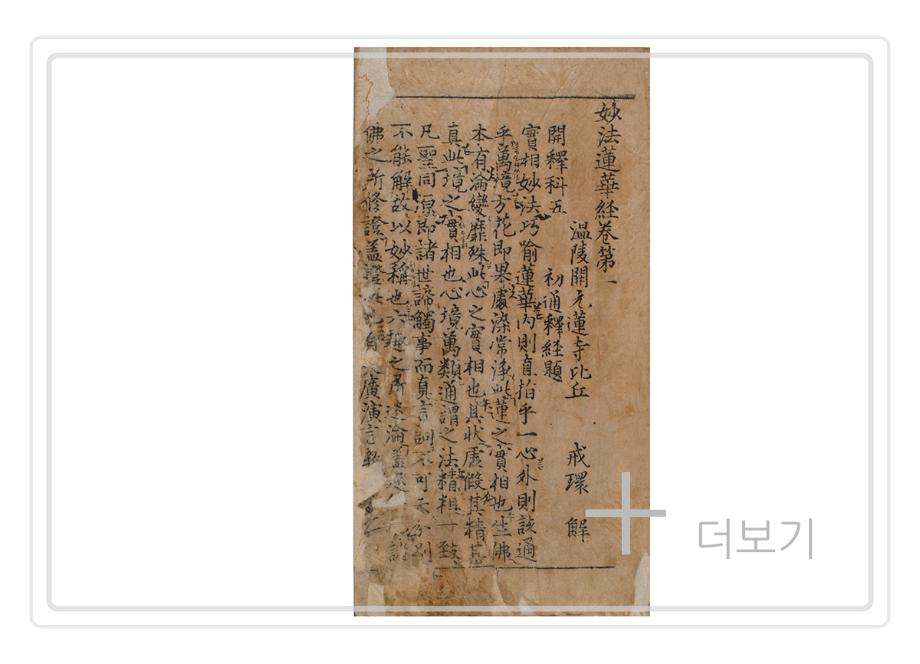 妙法蓮華経卷第一
溫陵開元蓮寺比丘 戒環 解
開釋科五 初通釋経題
實相妙法巧喻蓮華內則直指乎一心外則該通
乎萬境方花即果處染常淨此蓮之實相也生佛
本有淪變靡殊此心之實相也其狀虛假其精甚
真此境之實相也心境萬類通謂之法精粗一致
凡聖同源即諸世諦觸事而真言詞不可示分別
不能解故以妙稱也六趣之所迷淪
佛之所修證盖 廣演言
더보기